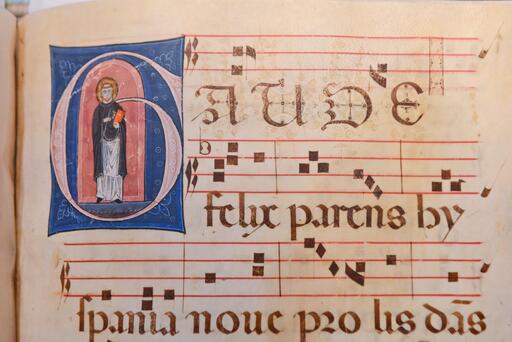 GAUDE
felix parens hy
spania noue prolis dās